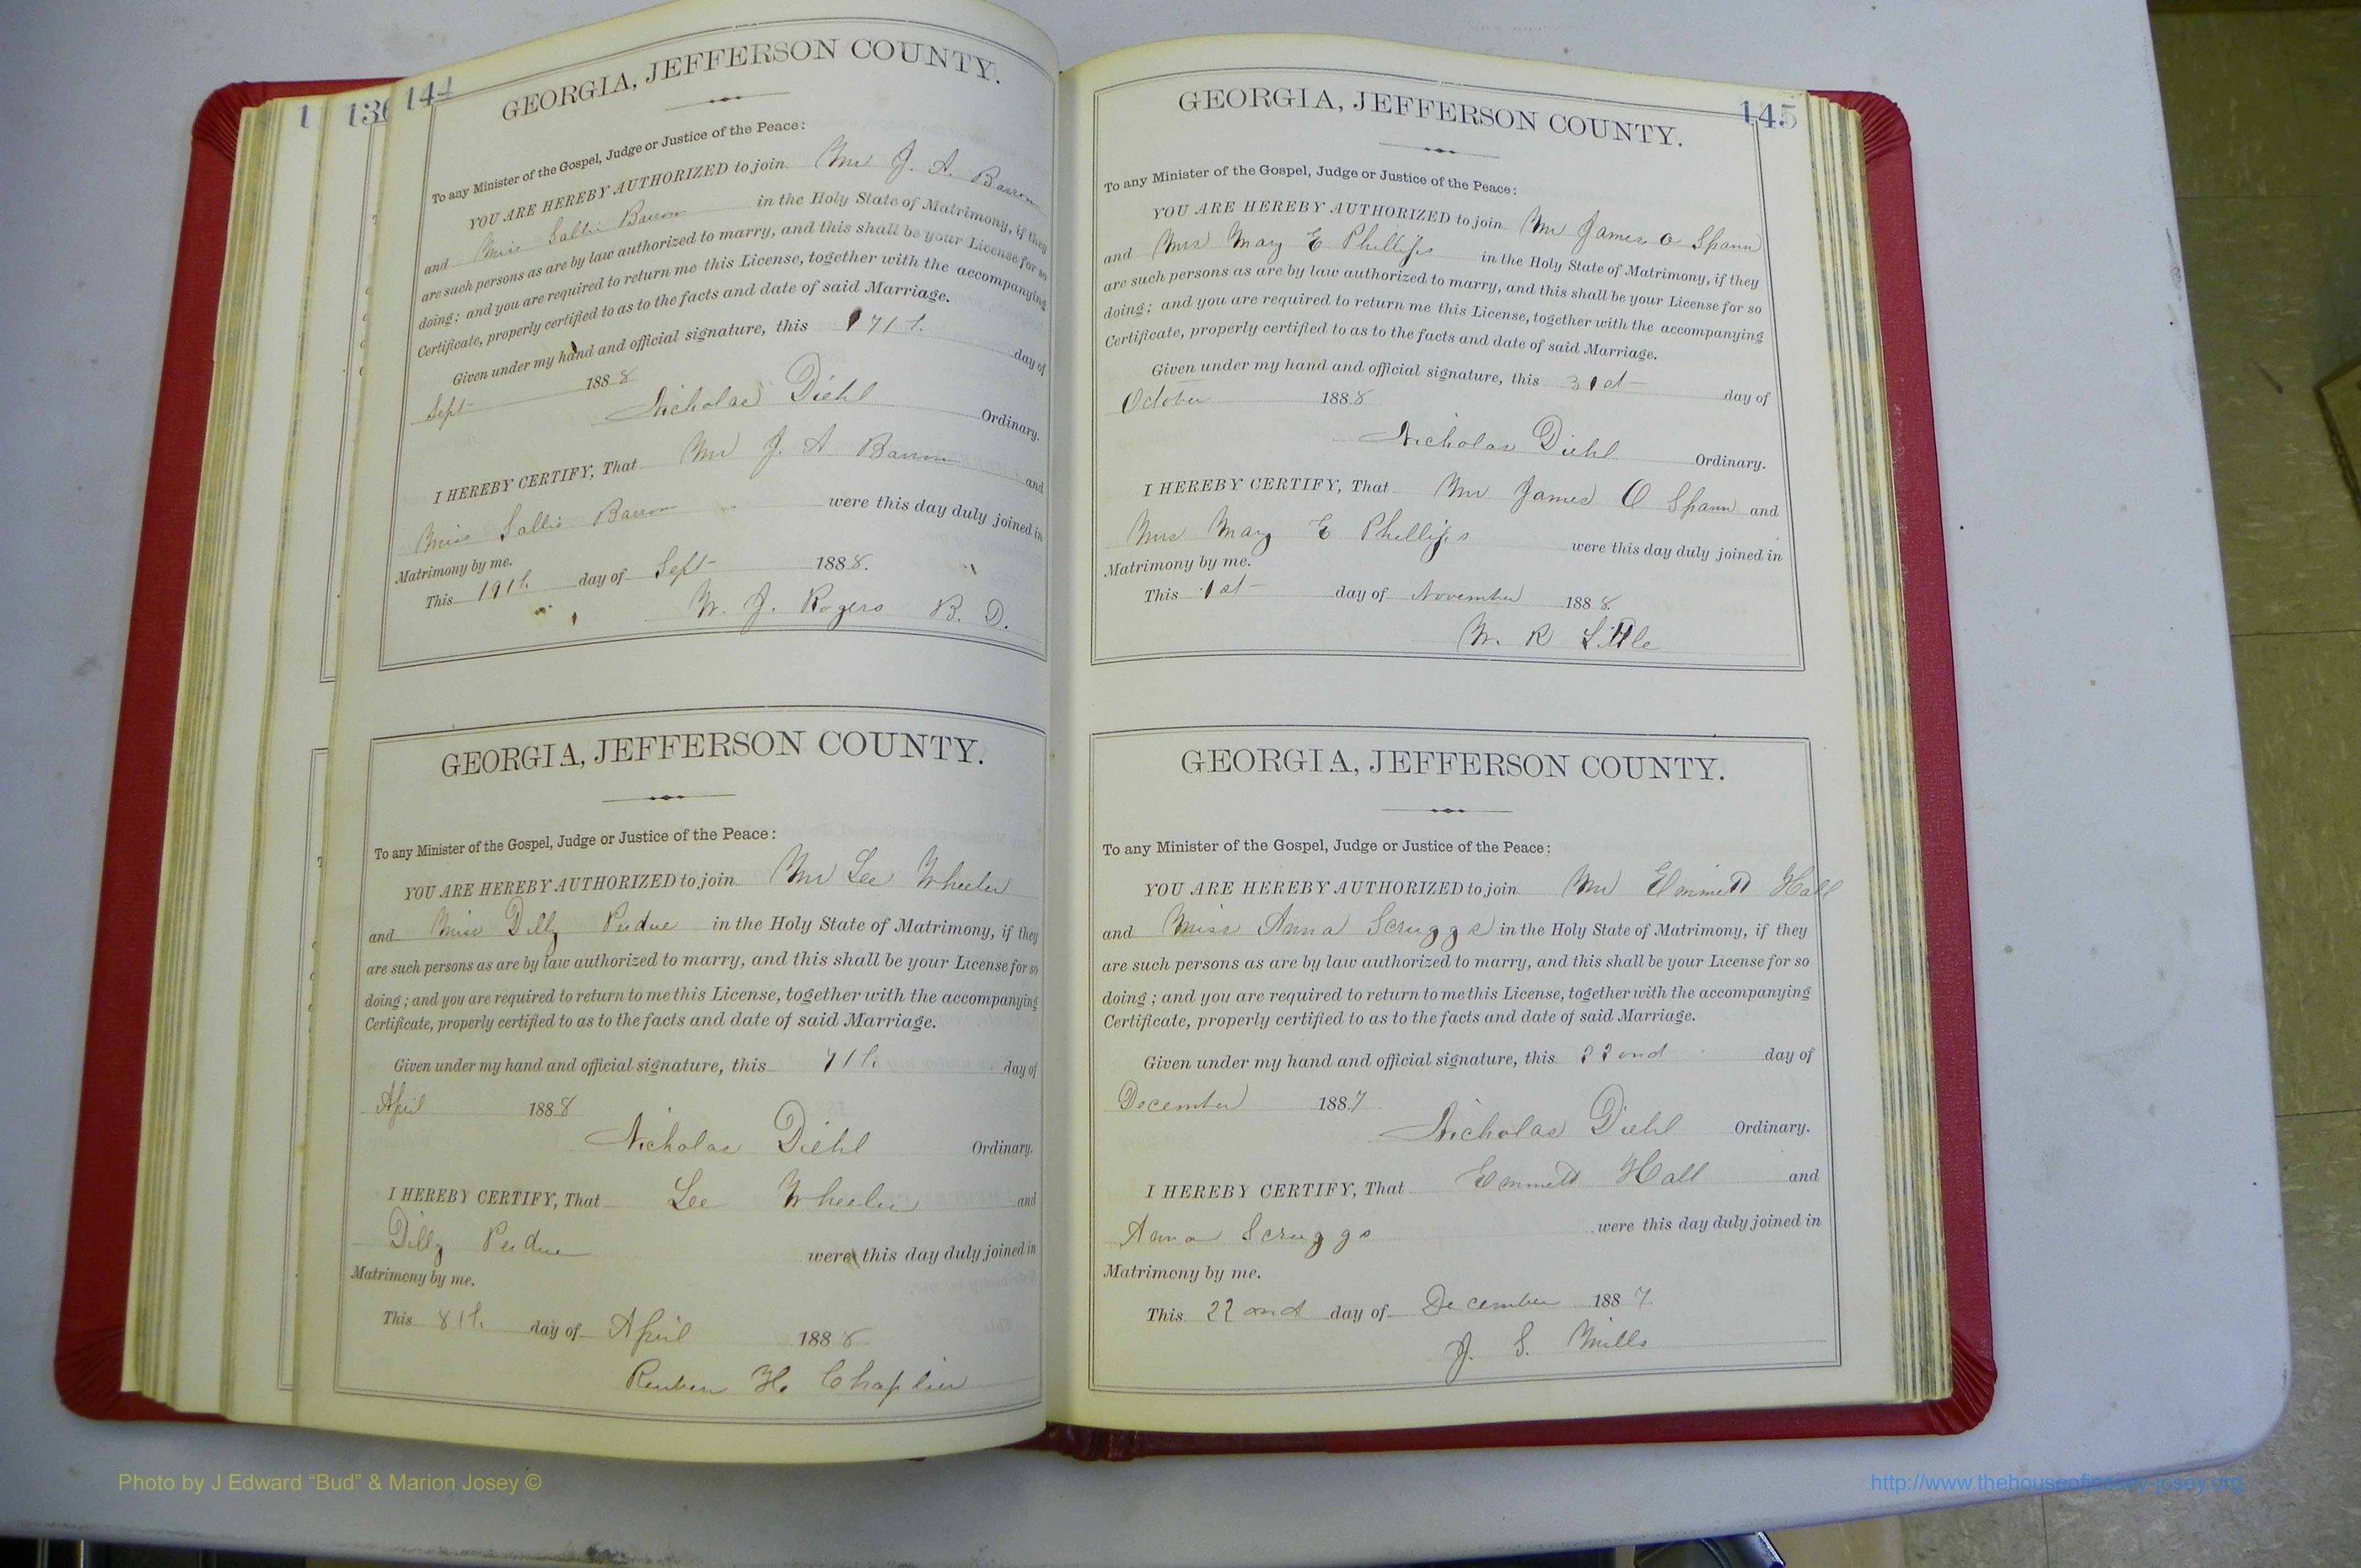 144
GEORGIA, JEFFERSON COUNTY.
To any Minister of the Gospel, Judge or Justice of the Peace:
YOU ARE HEREBY AUTHORIZED to join Mr J. A. Barron
and Miss Sallie Barron in the Holy State of Matrimony, if they
are such persons as are by law authorized to marry, and this shall be your License for so
doing; and you are required to return me this License, together with the accompanying
Certificate, properly certified to as to the facts and date of said Marriage.
Given under my hand and official signature, this 17th day of
Sept 1888
Nicholas Diehl Ordinary.
I HEREBY CERTIFY, That Mr J. A Barron and
Miss Sallie Barron were this day duly joined in
Matrimony by me.
This 19th day of Sept 1888.
W. J. Rogers B. D.
GEORGIA, JEFFERSON COUNTY.
To any Minister of the Gospel, Judge or Justice of the Peace:
YOU ARE HEREBY AUTHORIZED to join Mr Lee Wheeler
and Miss Dilly Perdue in the Holy State of Matrimony, if they
are such persons as are by law authorized to marry, and this shall be your License for so
doing; and you are required to return to me this License, together with the accompanying
Certificate, properly certified to as to the facts and date of said Marriage.
Given under my hand and official signature, this 7th day of
April 1888
Nicholas Diehl Ordinary.
I HEREBY CERTIFY, That Lee Wheeler and
Dilly Perdue were this day duly joined in
Matrimony by me.
This 8th day of April 1888
Reuben H. Chaplier
145
GEORGIA, JEFFERSON COUNTY.
To any Minister of the Gospel, Judge or Justice of the Peace:
YOU ARE HEREBY AUTHORIZED to join Mr James O Spann
and Mrs Mary E Phillips in the Holy State of Matrimony, if they
are such persons as are by law authorized to marry, and this shall be your License for so
doing; and you are required to return me this License, together with the accompanying
Certificate, properly certified to as to the facts and date of said Marriage.
Given under my hand and official signature, this 31st day of
October 1888
Nicholas Diehl Ordinary.
I HEREBY CERTIFY, That Mr James O Spann and
Mrs Mary E Phillips were this day duly joined in
Matrimony by me.
This 1st day of November 1888.
W. R Little
GEORGIA, JEFFERSON COUNTY.
To any Minister of the Gospel, Judge or Justice of the Peace:
YOU ARE HEREBY AUTHORIZED to join Mr Emmett Hall
and Miss Anna Scruggs in the Holy State of Matrimony, if they
are such persons as are by law authorized to marry, and this shall be your License for so
doing; and you are required to return to me this License, together with the accompanying
Certificate, properly certified to as to the facts and date of said Marriage.
Given under my hand and official signature, this 22ond day of
December 1887
Nicholas Diehl Ordinary.
I HEREBY CERTIFY, That Emmett Hall and
Anna Scruggs were this day duly joined in
Matrimony by me.
This 22ond day of December 1887
J. S. Mills
Photo by J Edward “Bud” & Marion Josey ©